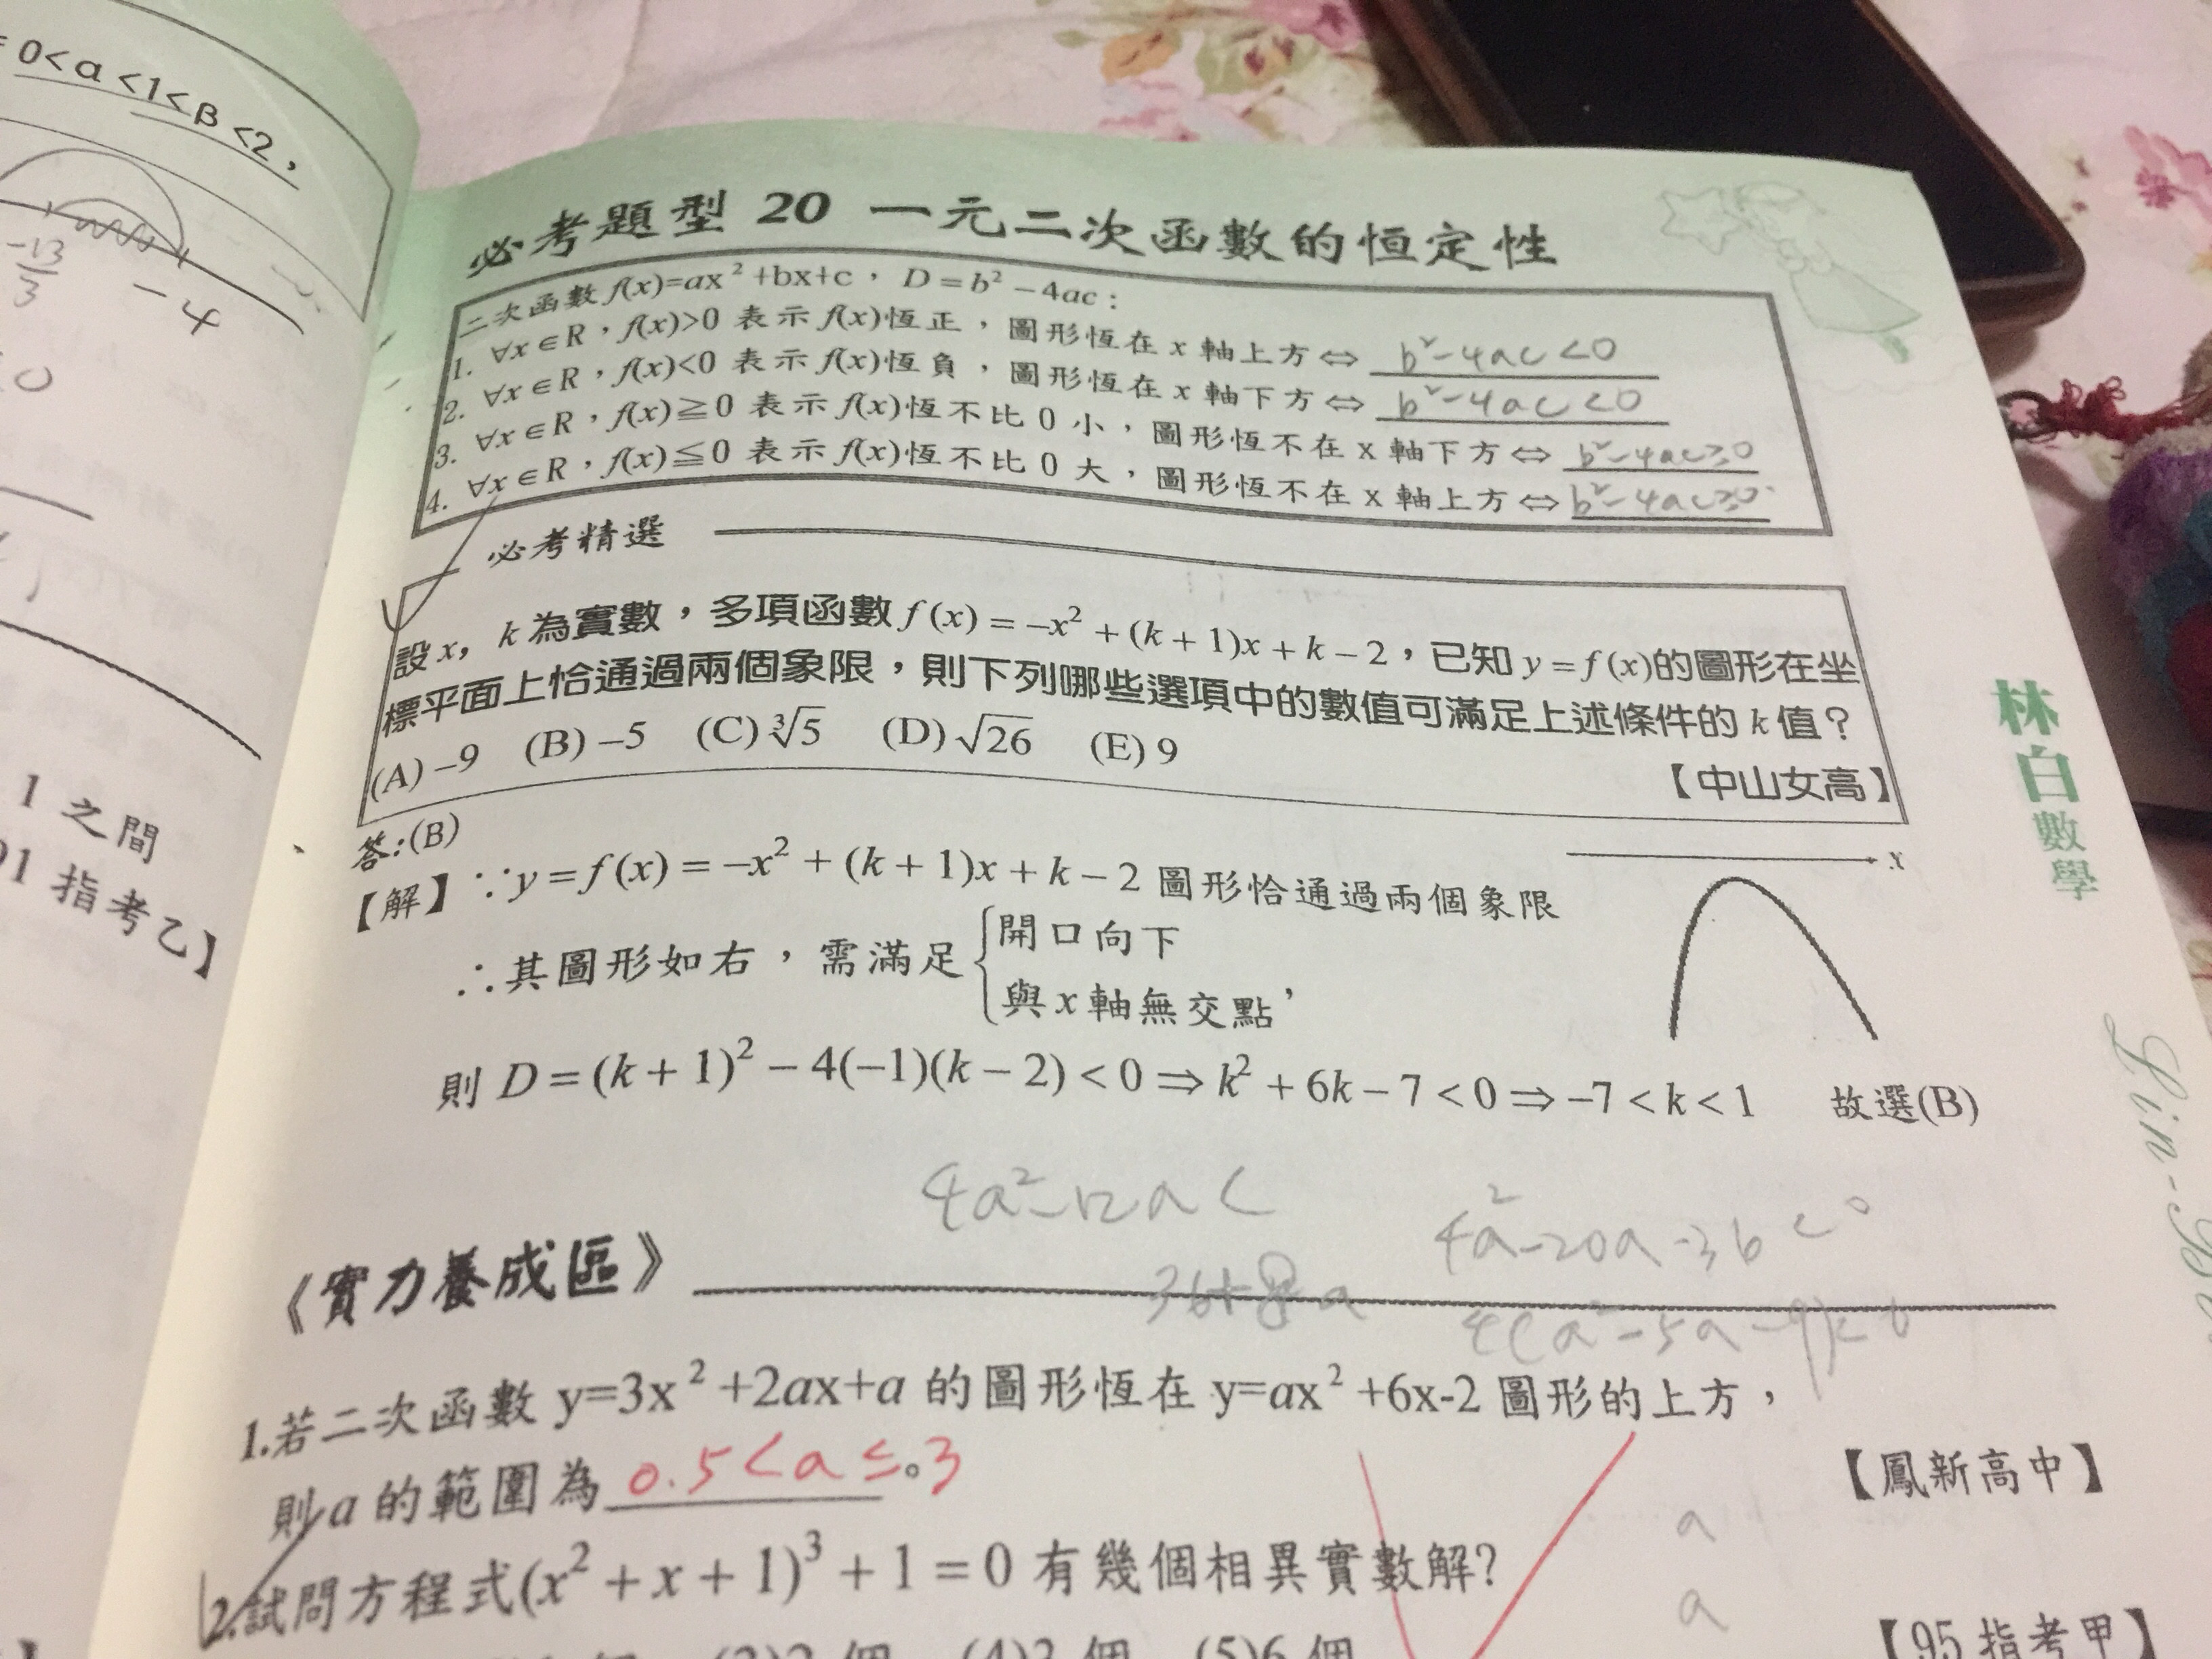 0<α<1<β<2，
-13
3
-4
1 之間
91 指考乙】
必考題型 20 一元二次函數的恒定性
二次函數 f(x)=ax²+bx+c， D=b²−4ac：
1. ∀x∈R，f(x)>0 表示 f(x)恆正，圖形恆在 x 軸上方⇔ b²-4ac<0
2. ∀x∈R，f(x)<0 表示 f(x)恆負，圖形恆在 x 軸下方⇔ b²-4ac<0
3. ∀x∈R，f(x)≧0 表示 f(x)恆不比 0 小，圖形恆不在 x 軸下方⇔ b²-4ac≥0
4. ∀x∈R，f(x)≦0 表示 f(x)恆不比 0 大，圖形恆不在 x 軸上方⇔ b²-4ac≥0
必考精選
設 x, k 為實數，多項函數 f(x)=−x²+(k+1)x+k−2，已知 y=f(x)的圖形在坐
標平面上恰通過兩個象限，則下列哪些選項中的數值可滿足上述條件的 k 值？
(A) −9 (B) −5 (C) ³√5 (D) √26 (E) 9
【中山女高】
答:(B)
【解】∵y=f(x)=−x²+(k+1)x+k−2 圖形恰通過兩個象限
x
∴其圖形如右，需滿足{開口向下
與 x 軸無交點，
則 D=(k+1)²−4(−1)(k−2)<0⇒k²+6k−7<0⇒−7<k<1 故選(B)
4a²-12a<
4a²-20a-36<0
《實力養成區》
36+8a
4(a²-5a-9)<0
1.若二次函數 y=3x²+2ax+a 的圖形恆在 y=ax²+6x-2 圖形的上方，
則 a 的範圍為 0.5<a≤3。
【鳳新高中】
a
2.試問方程式(x²+x+1)³+1=0 有幾個相異實數解?
a
【95 指考甲】
(3)2 個 (4)3 個 (5)6 個
林白數學